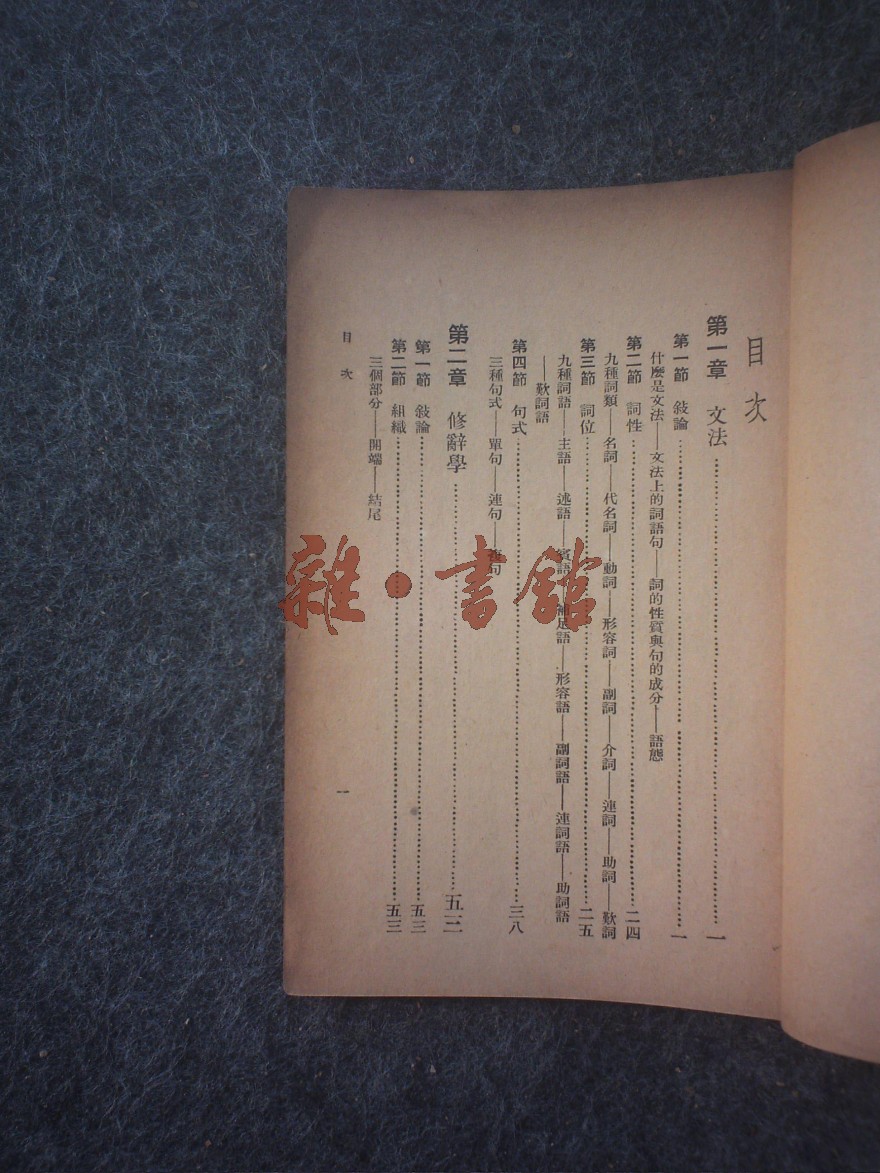 目次
第一章　文法……一
第一節　敍論……一
什麼是文法——文法上的詞語句——詞的性質與句的成分——語態
第二節　詞性……二四
九種詞類——名詞——代名詞——動詞——形容詞——副詞——介詞——連詞——助詞——歎詞
第三節　詞位……二五
九種詞語——主語——述語——賓語——補足語——形容語——副詞語——連詞語——助詞語
——歎詞語
第四節　句式……三八
三種句式——單句——連句——複句
第二章　修辭學……五三
第一節　敍論……五三
第二節　組織……五三
三個部分——開端——結尾
目次
一
雜·書館